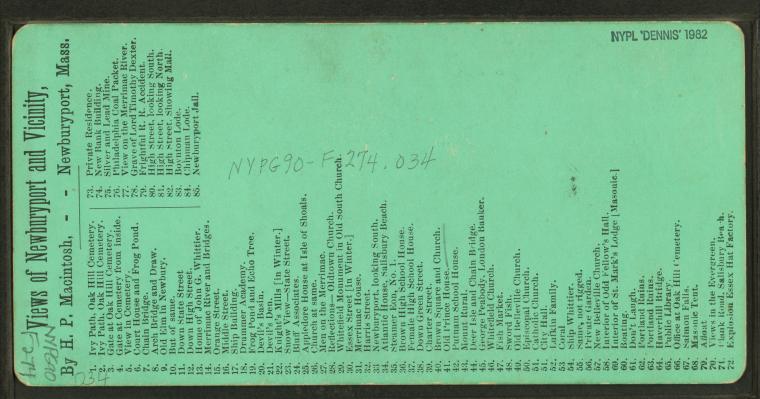 Views of Newburyport and Vicinity,
By H. P. Macintosh, - - Newburyport, Mass.
1. Ivy Path, Oak Hill Cemetery.
2. Ivy Path, Oak Hill Cemetery.
3. Gate at Oak Hill Cemetery.
4. Gate at Cemetery from inside.
5. View in Cemetery.
6. Court House and Frog Pond.
7. Chain Bridge.
8. Arch Bridge and Draw.
9. Old Elm in Newbury.
10. But of same.
11. Down State Street
12. Down High Street.
13. House of John G. Whittier.
14. Merrimac River and Bridges.
15. Orange Street.
16. Middle Street.
17. Ship Building.
18. Drummer Academy.
19. Frog Pond and Echo Tree.
20. Devil's Basin.
21. Devil's Den.
22. Knight's Mills [in Winter.]
23. Snow View—State Street.
24. Burnt Associates.
25. Appledore House at Isle of Shoals.
26. Church at same.
27. Mouth of the Merrimac.
28. Reflections—Oldtown Church.
29. Whitfield Monument in Old South Church.
30. Essex Street [in Winter.]
31. Merrimac House.
32. Harris Street.
33. Newburyport, looking South.
34. Atlantic House, Salisbury Beach.
35. Steamer Nos. No. 1.
36. Brown High School House.
37. Female High School House.
38. Down Green Street.
39. Charter Street.
40. Brown Square and Church.
41. Old Prince House.
42. Putnam School House.
43. Moonlight Scene.
44. Deer Isle and Chain Bridge.
45. George Peabody, London Banker.
46. Winter St. Church.
47. Fish Market.
48. Swedish.
49. Old Belleville Church.
50. Episcopal Church.
51. Catholic Church.
51. City Hall.
52. Lufkin Family.
53. Coral
54. Ship Whittier.
55. Same, not rigged.
56. Private.
57. New Belleville Church.
58. Interior Odd Fellow's Hall.
59. Interior of St. Mark's Lodge [Masonic.]
60. Boating.
61. Don't Laugh.
62. Portland Ruins.
63. Portland Ruins.
64. Haverhill Bridge.
65. Public Library.
66. Office at Oak Hill Cemetery.
67. Salmon Falls.
68. Masonic Tent.
70. Views in the Evergreen.
71. Plank Road, Salisbury Beach.
72. Explosion Essex Hat Factory.
73. Private Residence.
74. New Bank Building.
75. Silver and Lead Mine.
76. Philadelphia Coal Packet.
77. View on the Merrimac River.
78. Grave of Lord Timothy Dexter.
79. Frightful R. R. Accident.
80. High Street, looking South.
81. High Street, looking North.
82. High Street, Showing Mall.
83. Boynton Lode.
84. Chipman Lode.
85. Newburyport Jail.
NYPG90-F-274.034
NYPL 'DENNIS' 1982